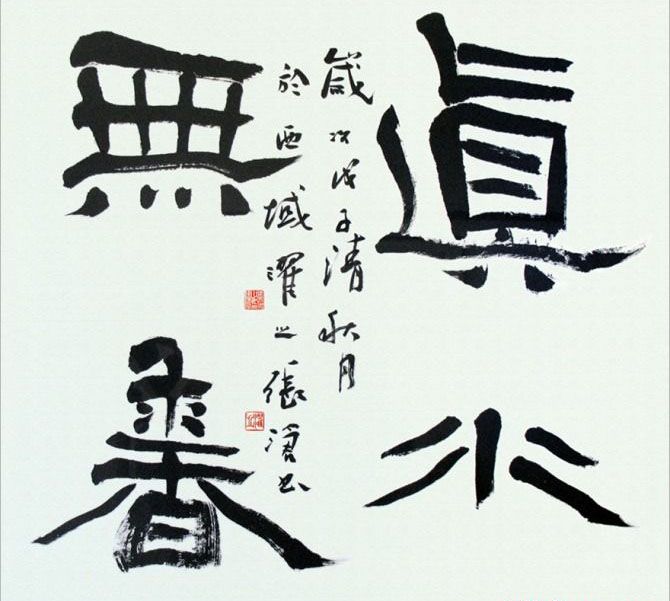 眞水
無香
歲次戊子清秋月
於西域濯之張書